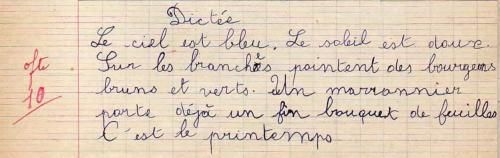 Dictée
Le ciel est bleu. Le soleil est doux.
Sur les branches pointent des bourgeons
bruns et verts. Un marronnier
porte déjà un fin bouquet de feuilles
C'est le printemps
10